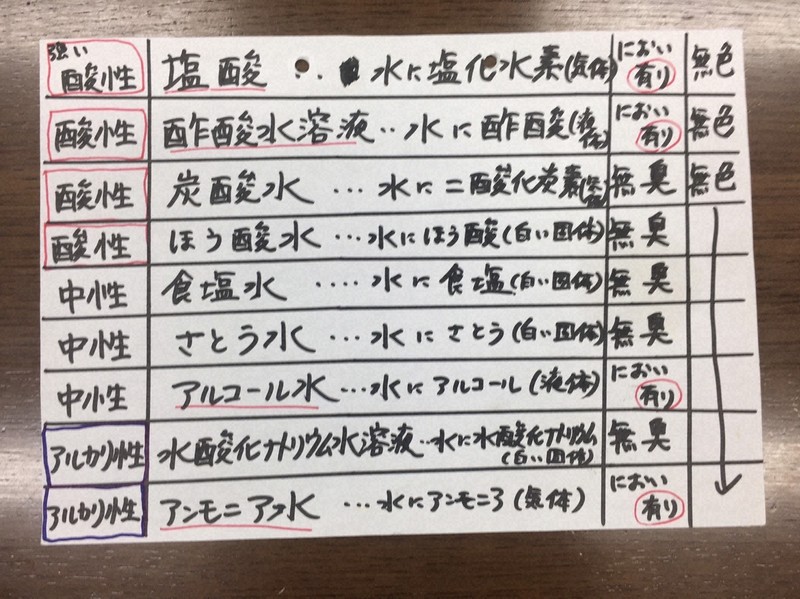 強い 酸性 塩酸 ・・ 水に塩化水素(気体) におい有り 無色
酸性 酢酸水溶液・・水に酢酸(液体) におい有り 無色
酸性 炭酸水 ・・・ 水に二酸化炭素(気体) 無臭 無色
酸性 ほう酸水 ・・・水にほう酸(白い固体) 無臭
中性 食塩水 ・・・・ 水に食塩(白い固体) 無臭
中性 さとう水 ・・・・ 水にさとう(白い固体) 無臭
中性 アルコール水・・・水にアルコール(液体) におい有り
アルカリ性 水酸化ナトリウム水溶液・・水に水酸化ナトリウム(白い固体) 無臭
アルカリ性 アンモニア水 ・・・水にアンモニア(気体) におい有り